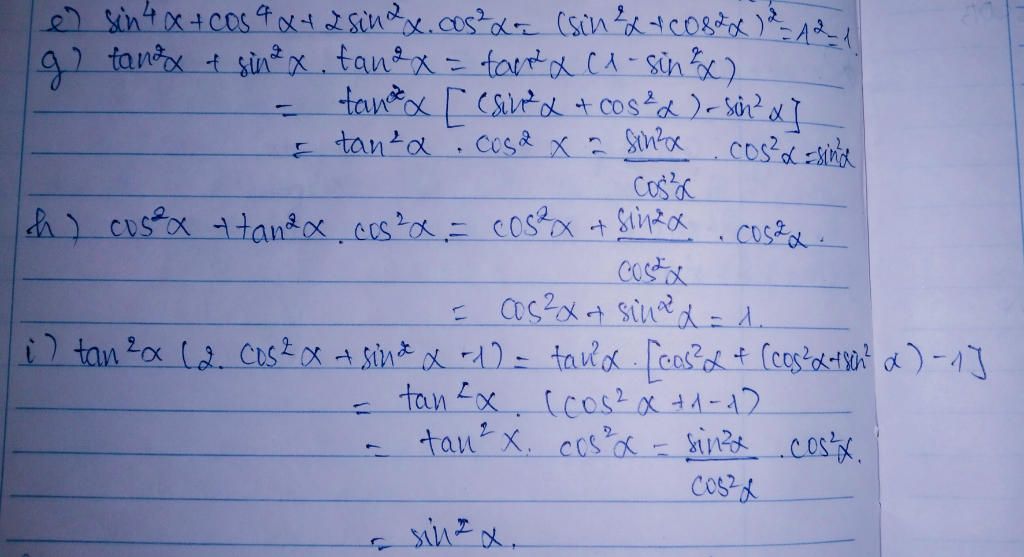 e) sin⁴α + cos⁴α + 2sin²α.cos²α = (sin²α + cos²α)² = 1² = 1.
g) tan²α + sin²α . tan²α = tan²α (1 - sin²α)
= tan²α [(sin²α + cos²α) - sin²α]
= tan²α . cos²α = sin²α/cos²α . cos²α = sin²α
h) cos²α + tan²α . cos²α = cos²α + sin²α/cos²α . cos²α.
= cos²α + sin²α = 1.
i) tan²α (2. cos²α + sin²α - 1) = tan²α . [cos²α + (cos²α + sin²α) - 1]
= tan²α . (cos²α + 1 - 1)
= tan²α . cos²α = sin²α/cos²α . cos²α.
= sin²α.